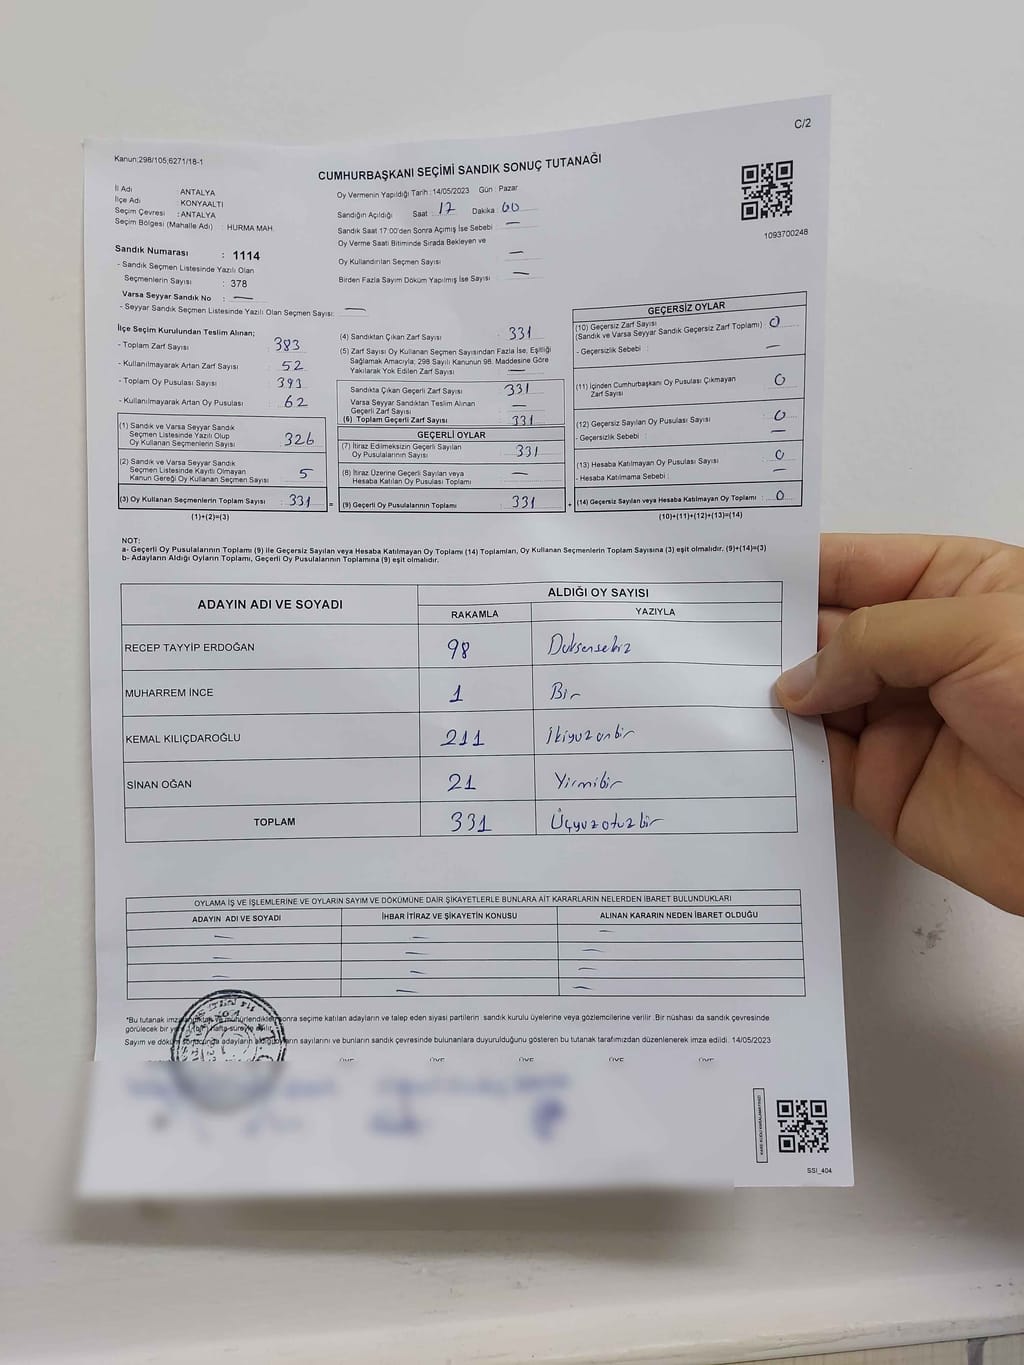 C/2
Kanun;298/105;6271/18-1
CUMHURBAŞKANI SEÇİMİ SANDIK SONUÇ TUTANAĞI
İl Adı : ANTALYA
İlçe Adı : KONYAALTI
Seçim Çevresi : ANTALYA
Seçim Bölgesi (Mahalle Adı) : HURMA MAH.
Sandık Numarası : 1114
- Sandık Seçmen Listesinde Yazılı Olan
Seçmenlerin Sayısı : 378
Varsa Seyyar Sandık No : —
- Seyyar Sandık Seçmen Listesinde Yazılı Olan Seçmen Sayısı: —
Oy Vermenin Yapıldığı Tarih :14/05/2023 Gün : Pazar
Sandığın Açıldığı Saat 17 Dakika 00
Sandık Saat 17:00'den Sonra Açımış İse Sebebi —
Oy Verme Saati Bitiminde Sırada Bekleyen ve
Oy Kullandırılan Seçmen Sayısı —
Birden Fazla Sayım Döküm Yapılmış İse Sayısı —
1093700248
İlçe Seçim Kurulundan Teslim Alınan;
- Toplam Zarf Sayısı : 383
- Kullanılmayarak Artan Zarf Sayısı : 52
- Toplam Oy Pusulası Sayısı : 393
- Kullanılmayarak Artan Oy Pusulası : 62
(1) Sandık ve Varsa Seyyar Sandık
Seçmen Listesinde Yazılı Olup
Oy Kullanan Seçmenlerin Sayısı : 326
(2) Sandık ve Varsa Seyyar Sandık
Seçmen Listesinde Kayıtlı Olmayan
Kanun Gereği Oy Kullanan Seçmen Sayısı : 5
(3) Oy Kullanan Seçmenlerin Toplam Sayısı : 331
(1)+(2)=(3)
(4) Sandıktan Çıkan Zarf Sayısı : 331
(5) Zarf Sayısı Oy Kullanan Seçmen Sayısından Fazla İse, Eşitliği
Sağlamak Amacıyla; 298 Sayılı Kanunun 98. Maddesine Göre
Yakılarak Yok Edilen Zarf Sayısı : —
Sandıkta Çıkan Geçerli Zarf Sayısı : 331
Varsa Seyyar Sandıktan Teslim Alınan
Geçerli Zarf Sayısı : —
(6) Toplam Geçerli Zarf Sayısı : 331
GEÇERLİ OYLAR
(7) İtiraz Edilmeksizin Geçerli Sayılan
Oy Pusulalarının Sayısı : 331
(8) İtiraz Üzerine Geçerli Sayılan veya
Hesaba Katılan Oy Pusulası Toplamı : —
= (9) Geçerli Oy Pusulalarının Toplamı : 331 +
GEÇERSİZ OYLAR
(10) Geçersiz Zarf Sayısı
(Sandık ve Varsa Seyyar Sandık Geçersiz Zarf Toplamı) : 0
- Geçersizlik Sebebi : —
(11) İçinden Cumhurbaşkanı Oy Pusulası Çıkmayan
Zarf Sayısı : 0
(12) Geçersiz Sayılan Oy Pusulası Sayısı : 0
- Geçersizlik Sebebi : —
(13) Hesaba Katılmayan Oy Pusulası Sayısı : 0
- Hesaba Katılmama Sebebi : —
(14) Geçersiz Sayılan veya Hesaba Katılmayan Oy Toplamı : 0
(10)+(11)+(12)+(13)=(14)
NOT:
a- Geçerli Oy Pusulalarının Toplamı (9) ile Geçersiz Sayılan veya Hesaba Katılmayan Oy Toplamı (14) Toplamları, Oy Kullanan Seçmenlerin Toplam Sayısına (3) eşit olmalıdır. (9)+(14)=(3)
b- Adayların Aldığı Oyların Toplamı, Geçerli Oy Pusulalarının Toplamına (9) eşit olmalıdır.
ADAYIN ADI VE SOYADI ALDIĞI OY SAYISI
RAKAMLA YAZIYLA
RECEP TAYYİP ERDOĞAN 98 Doksansekiz
MUHARREM İNCE 1 Bir
KEMAL KILIÇDAROĞLU 211 İkiyüzonbir
SİNAN OĞAN 21 Yirmibir
TOPLAM 331 Üçyüzotuzbir
OYLAMA İŞ VE İŞLEMLERİNE VE OYLARIN SAYIM VE DÖKÜMÜNE DAİR ŞİKAYETLERLE BUNLARA AİT KARARLARIN NELERDEN İBARET BULUNDUKLARI
ADAYIN ADI VE SOYADI İHBAR İTİRAZ VE ŞİKAYETİN KONUSU ALINAN KARARIN NEDEN İBARET OLDUĞU
— — —
— — —
— — —
— —
*Bu tutanak imzalandıktan ve mühürlendikten sonra seçime katılan adayların ve talep eden siyasi partilerin sandık kurulu üyelerine veya gözlemcilerine verilir .Bir nüshası da sandık çevresinde
görülecek bir yere (bir) hafta süreyle asılır.
Sayım ve döküm sonucunda adayların aldığı oyların sayılarını ve bunların sandık çevresinde bulunanlara duyurulduğunu gösteren bu tutanak tarafımızdan düzenlenerek imza edildi. 14/05/2023
ÜYE ÜYE ÜYE ÜYE ÜYE
SSİ_404